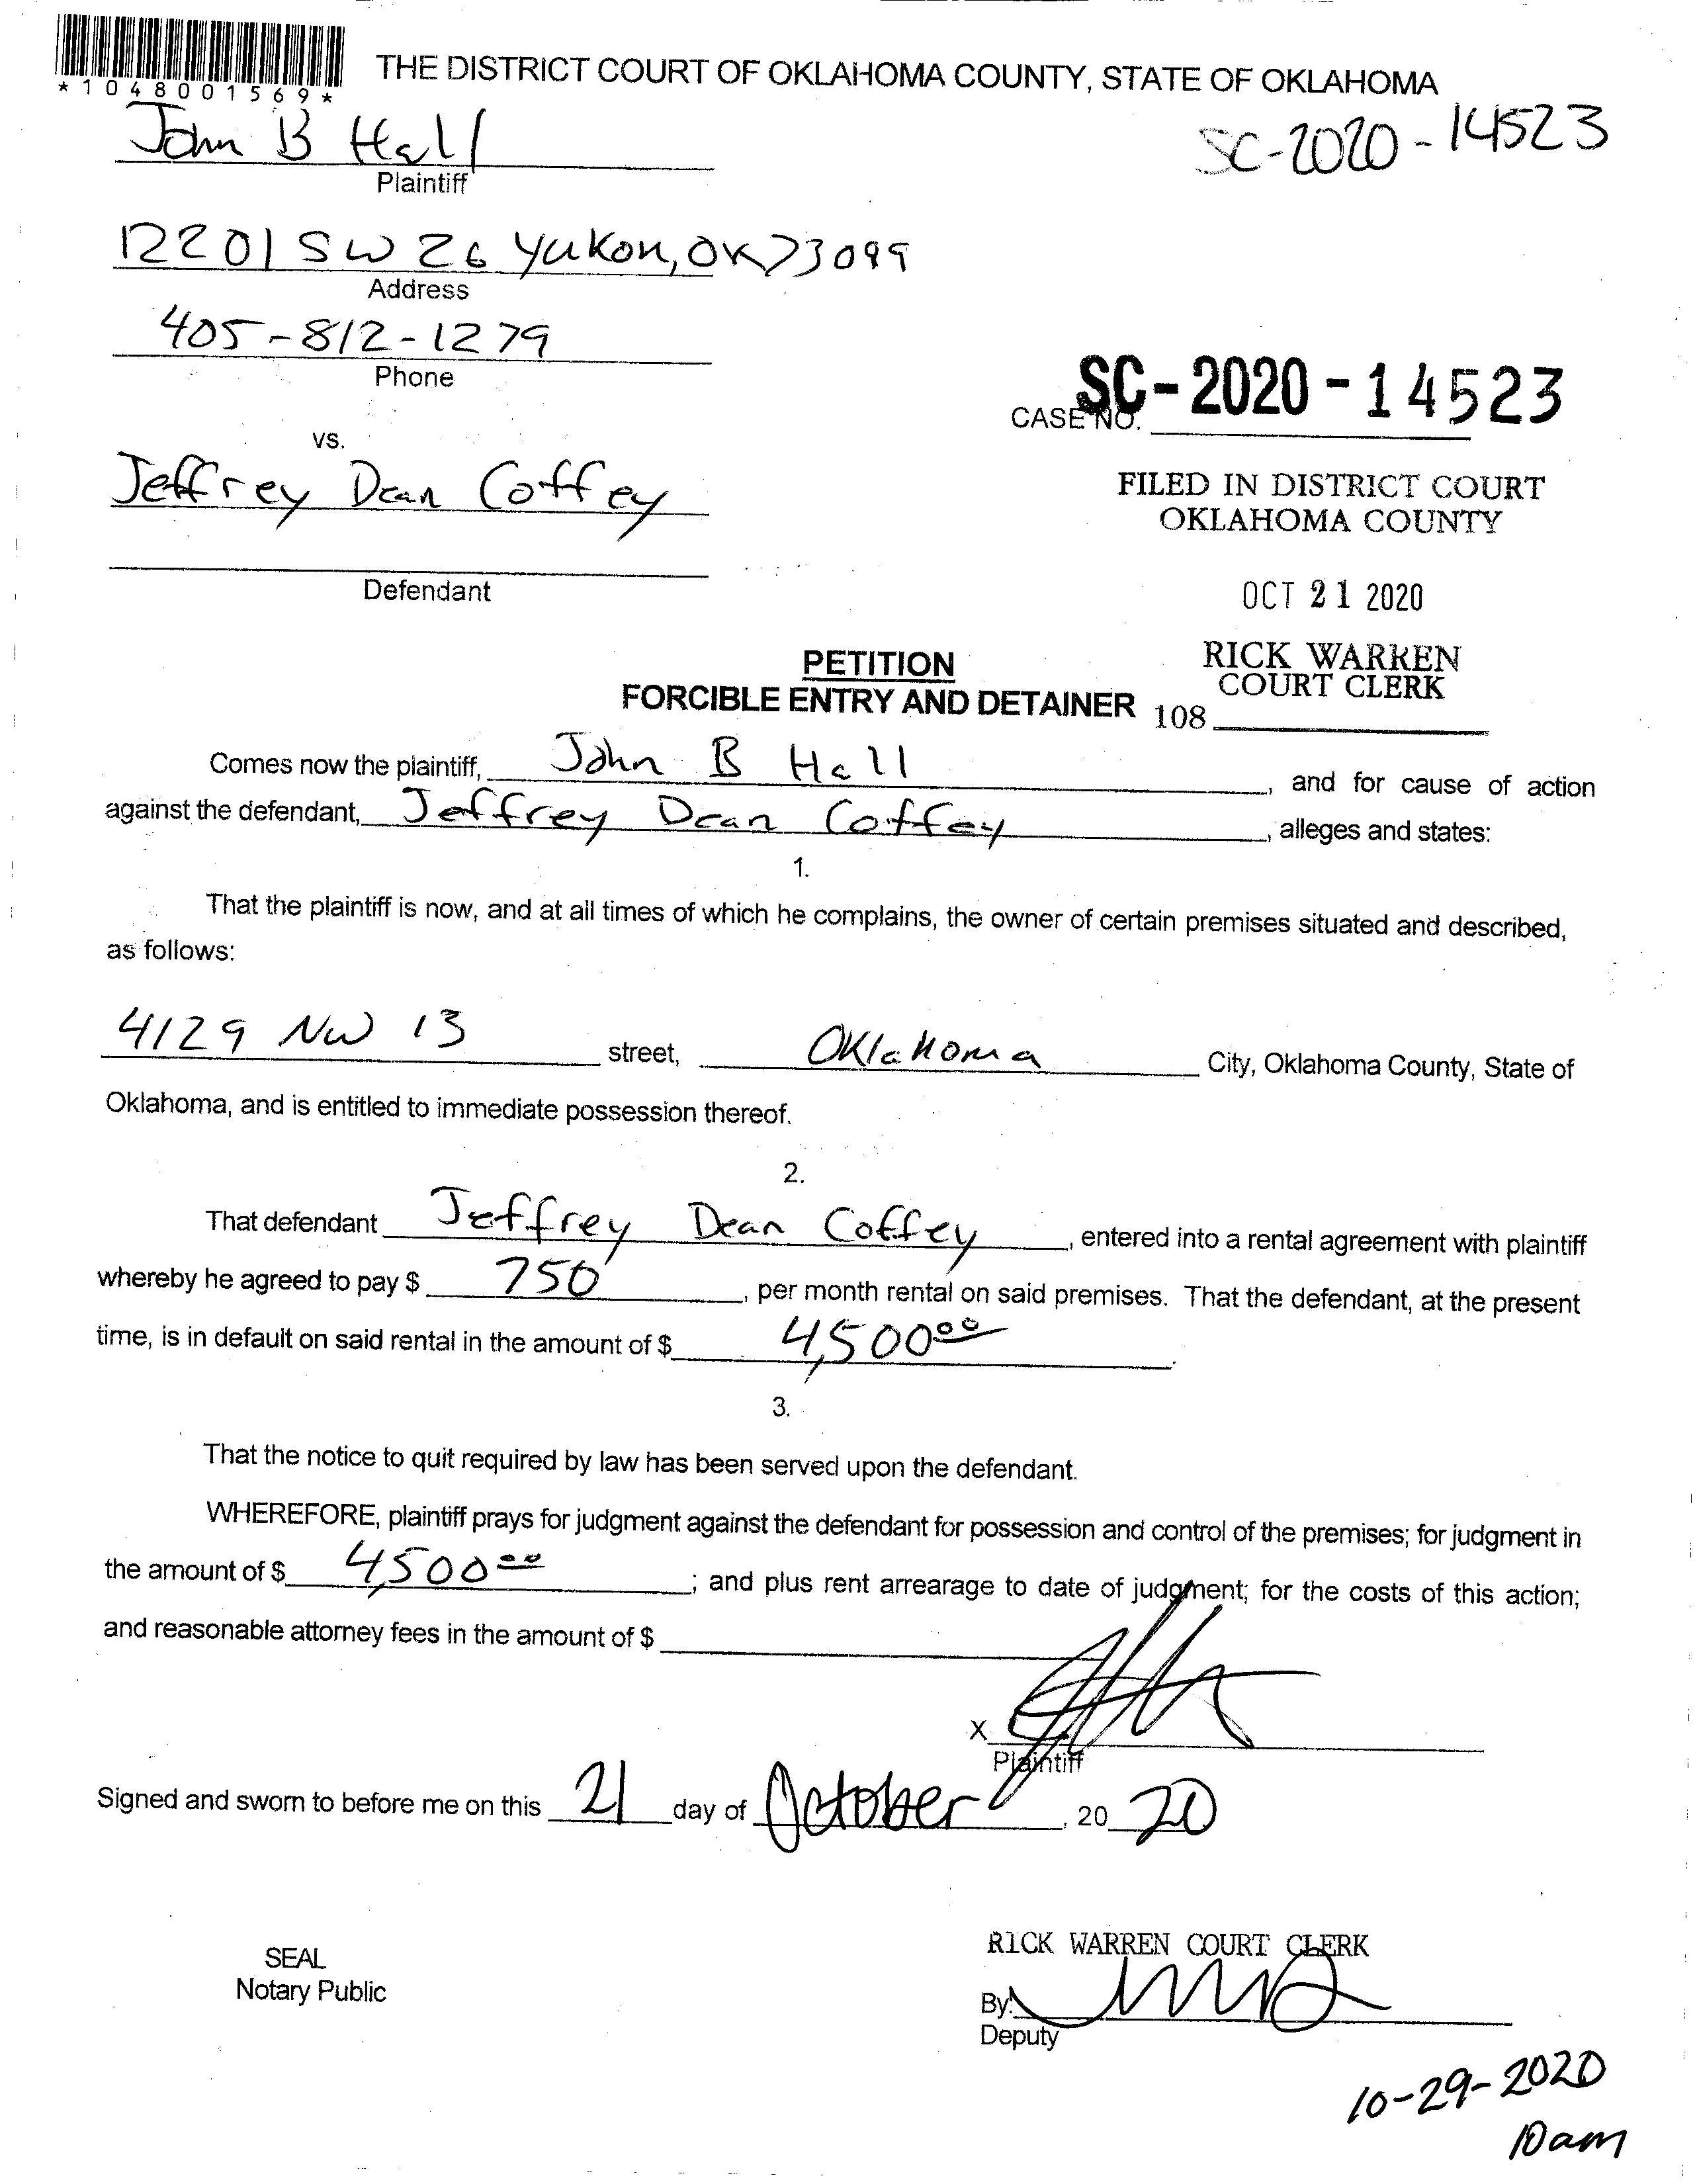 *1048001569*
THE DISTRICT COURT OF OKLAHOMA COUNTY, STATE OF OKLAHOMA
John B Hall
SC-2020-14523
Plaintiff
12201 SW 26 Yukon, OK 73099
Address
405-812-1279
Phone
CASE NO. SC-2020-14523
vs.
Jeffrey Dean Coffey
FILED IN DISTRICT COURT
OKLAHOMA COUNTY
Defendant
OCT 21 2020
PETITION
FORCIBLE ENTRY AND DETAINER
RICK WARREN
COURT CLERK
108
Comes now the plaintiff, John B Hall, and for cause of action
against the defendant, Jeffrey Dean Coffey, alleges and states:
1.
That the plaintiff is now, and at all times of which he complains, the owner of certain premises situated and described,
as follows:
4129 NW 13 street, Oklahoma City, Oklahoma County, State of
Oklahoma, and is entitled to immediate possession thereof.
2.
That defendant Jeffrey Dean Coffey, entered into a rental agreement with plaintiff
whereby he agreed to pay $ 750, per month rental on said premises. That the defendant, at the present
time, is in default on said rental in the amount of $ 4,500 00.
3.
That the notice to quit required by law has been served upon the defendant.
WHEREFORE, plaintiff prays for judgment against the defendant for possession and control of the premises; for judgment in
the amount of $ 4,500 00; and plus rent arrearage to date of judgment; for the costs of this action;
and reasonable attorney fees in the amount of $
X
Plaintiff
Signed and sworn to before me on this 21 day of October, 20 20
SEAL
Notary Public
RICK WARREN COURT CLERK
By:
Deputy
10-29-2020
10am